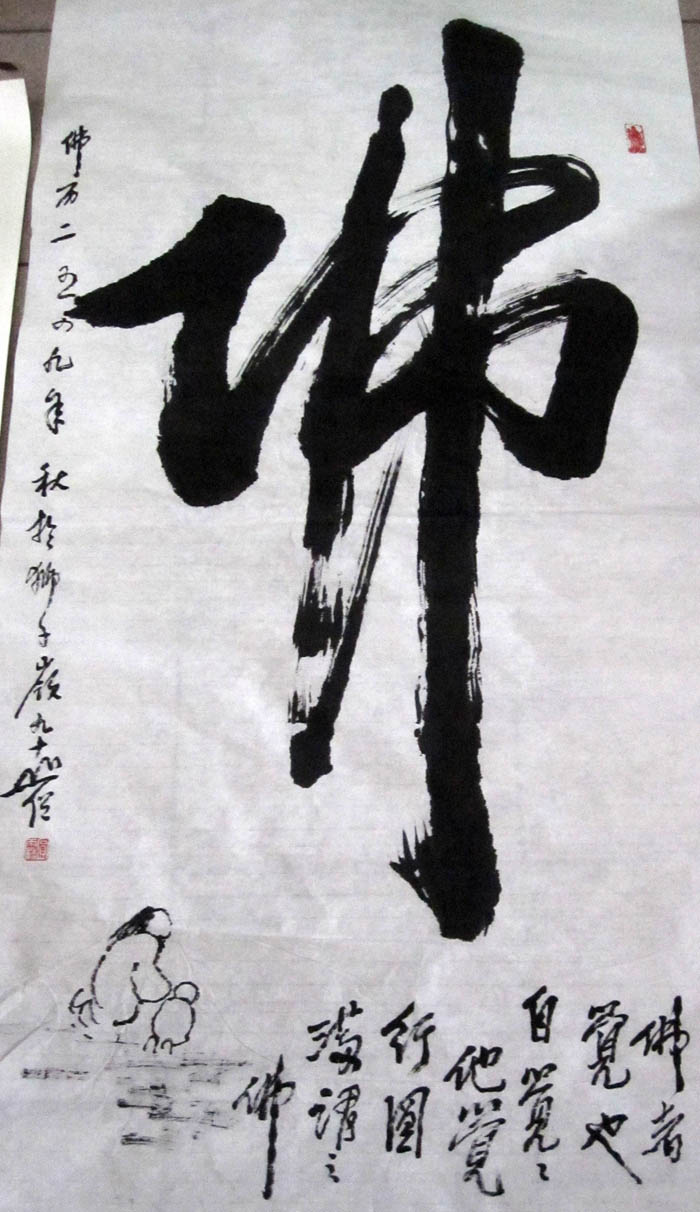 佛
佛者
覺也
自覺々
他覺
行圓
滿謂之
佛
佛历二五四九年 秋於獅子嶺九十